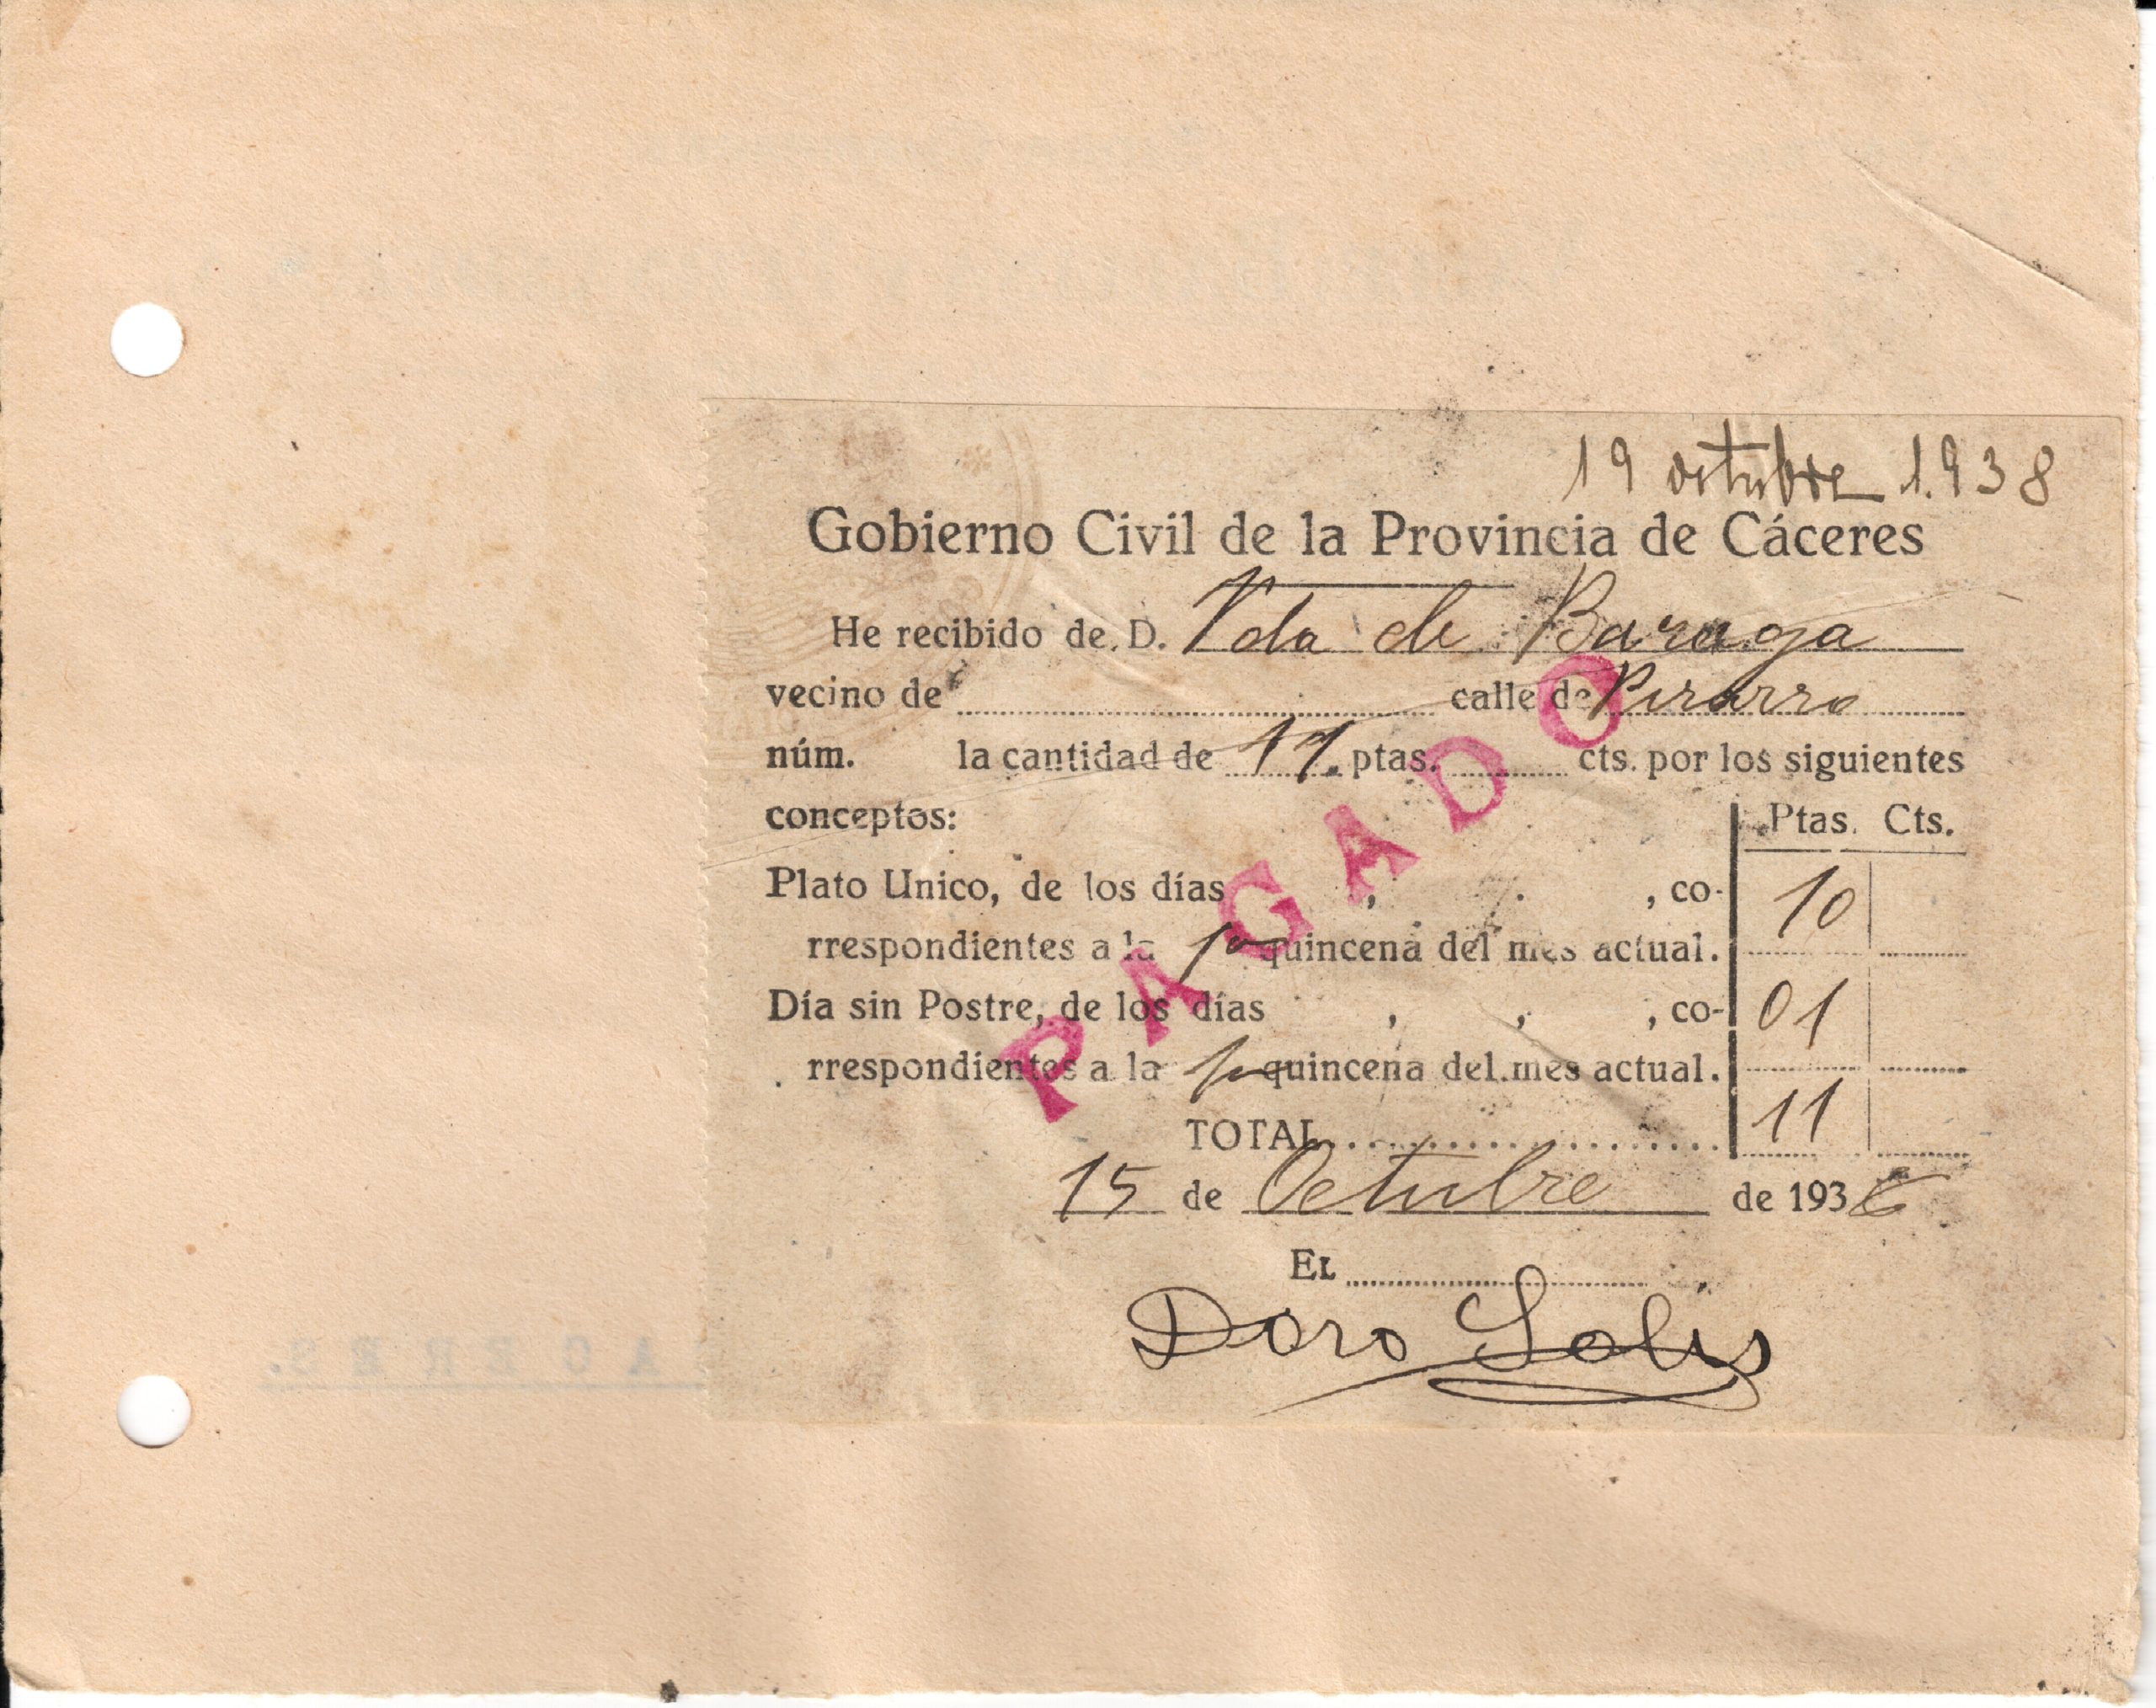 19 octubre 1.938
Gobierno Civil de la Provincia de Cáceres
He recibido de D. Vda de Baraga
vecino de calle de Pizarro
núm. la cantidad de 11 ptas. cts. por los siguientes
conceptos:
Ptas. Cts.
Plato Unico, de los días , . , co-
rrespondientes a la 1ª quincena del mes actual. 10
Día sin Postre, de los días , , , co-
rrespondientes a la 1ª quincena del mes actual. 01
TOTAL 11
15 de Octubre de 193
EL
Doro Solis
PAGADO
ACERES.